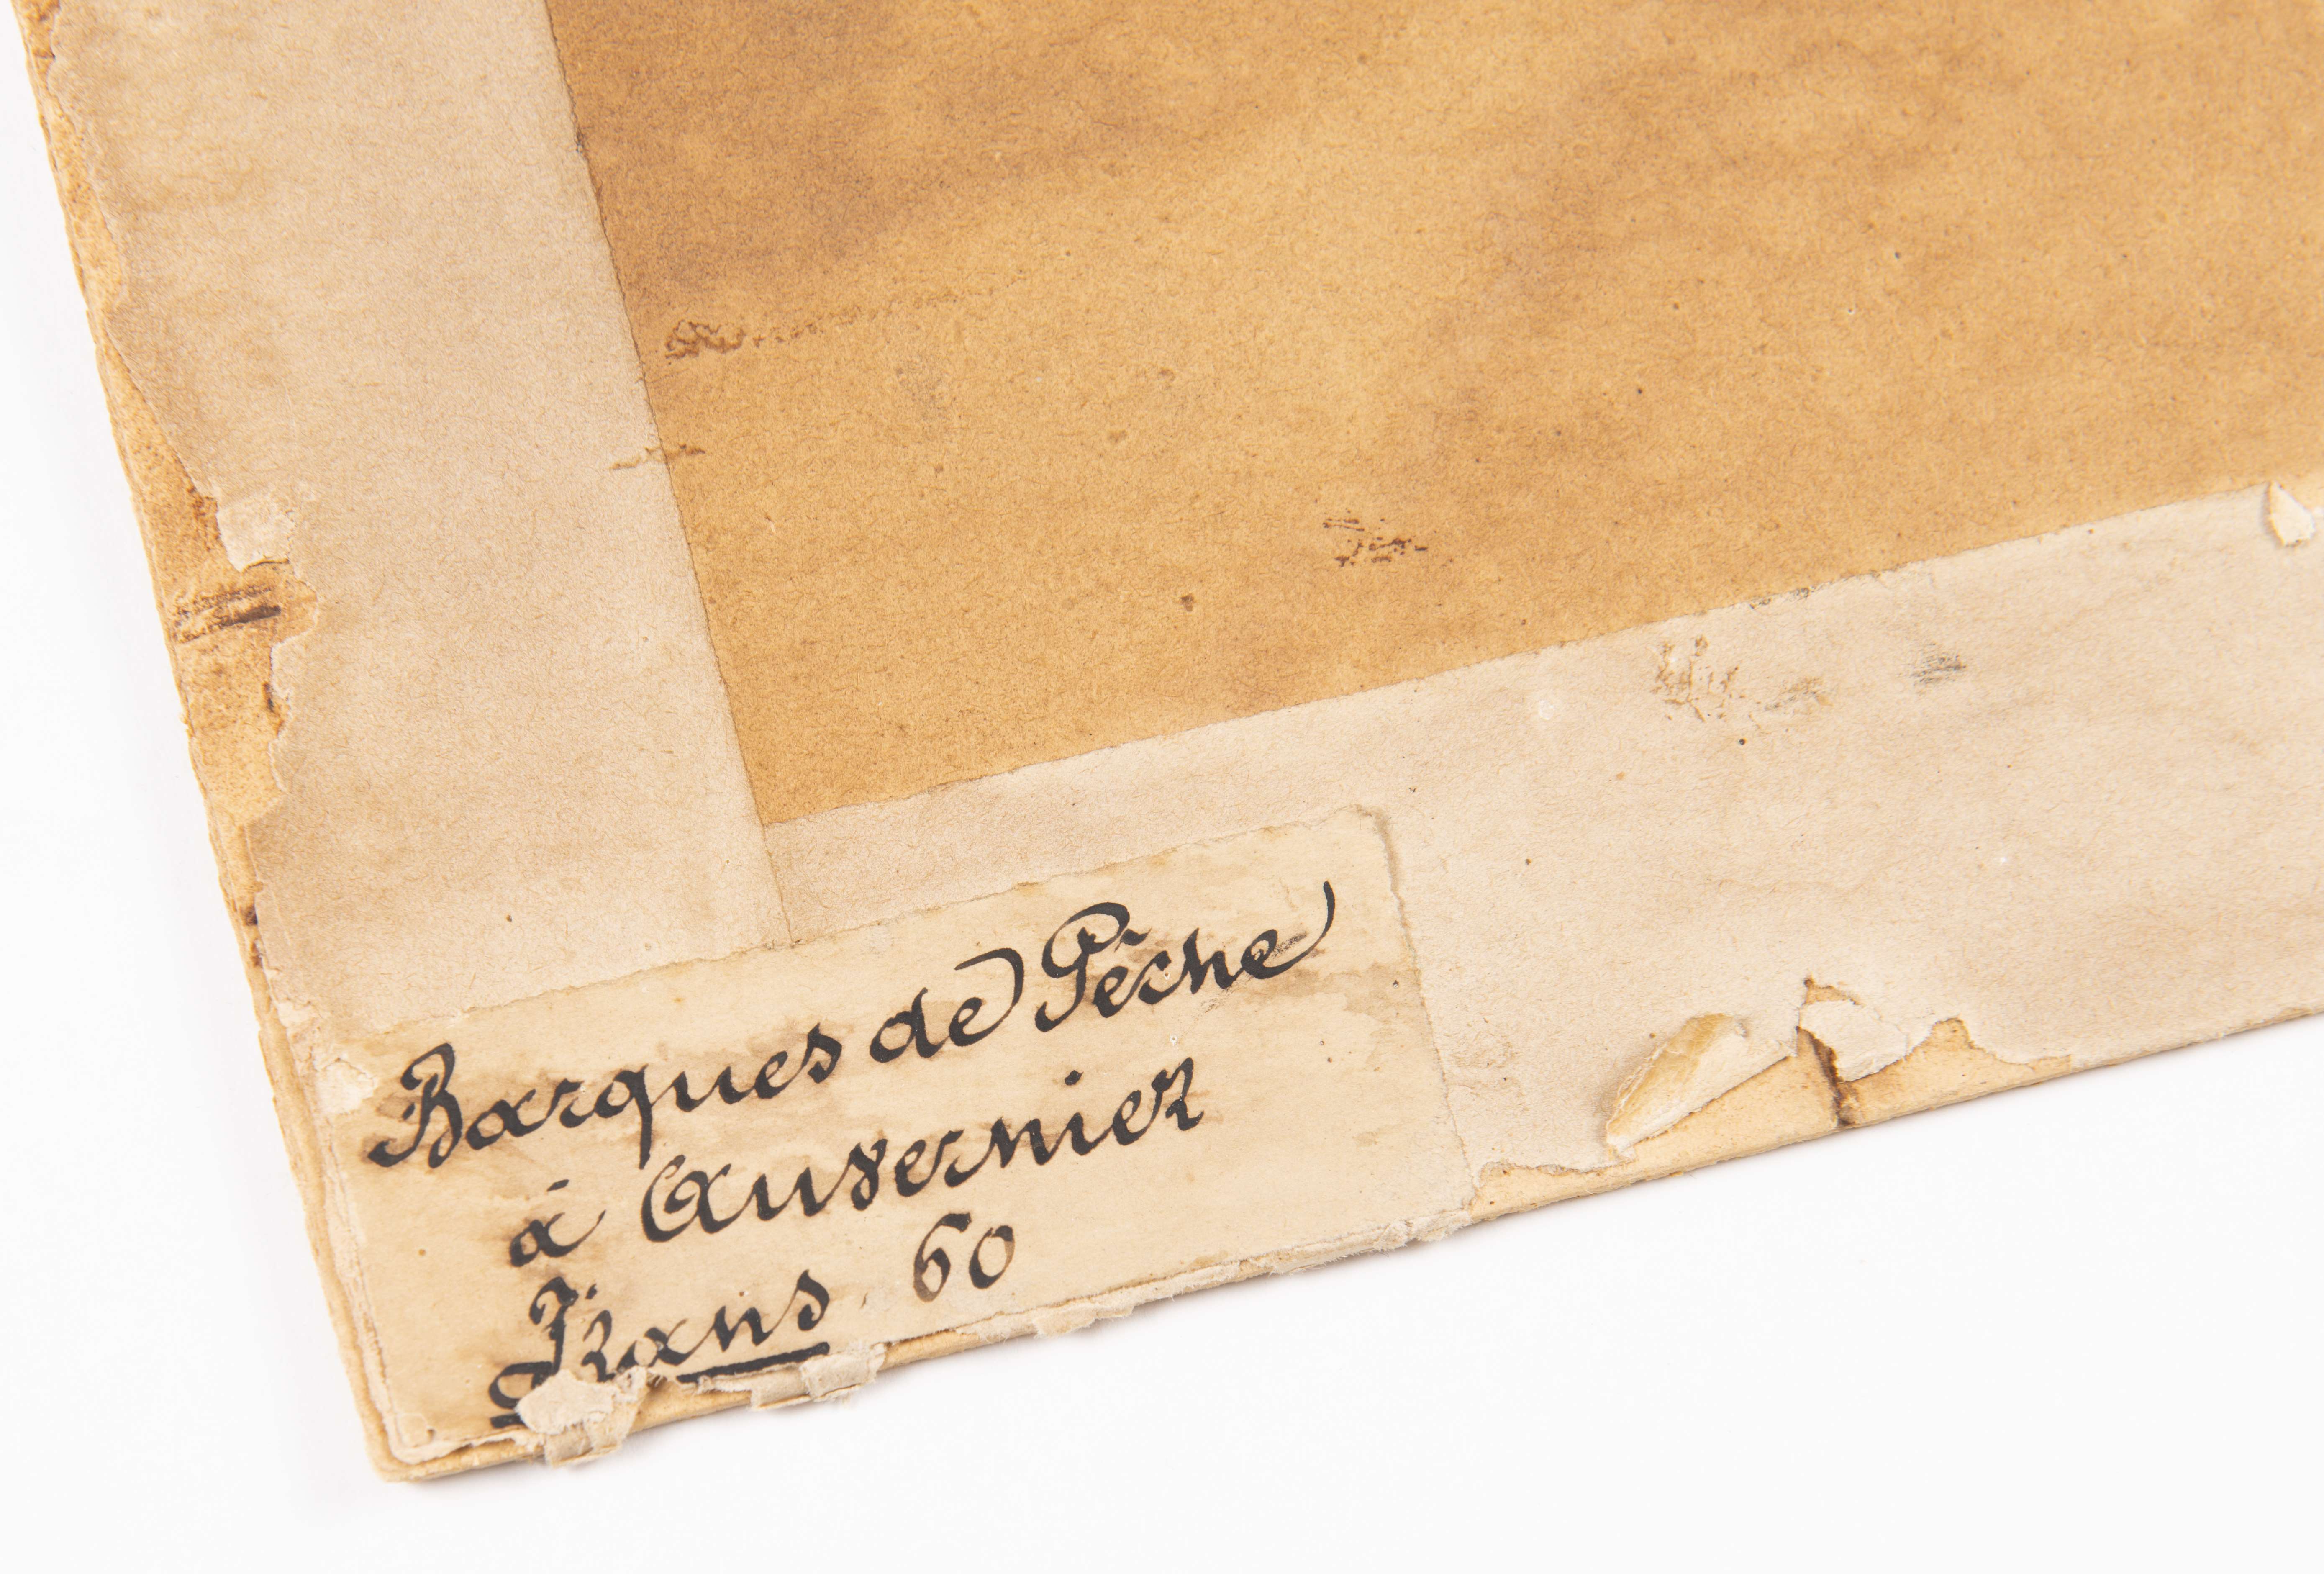 Barques de Pêche
à Auvernier
Frans 60